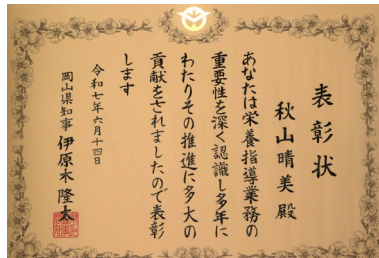 表彰状
秋山晴美 殿
あなたは栄養指導業務の
重要性を深く認識し多年に
わたりその推進に多大の
貢献をされましたので表彰
します
令和七年六月十四日
岡山県知事 伊原木隆太